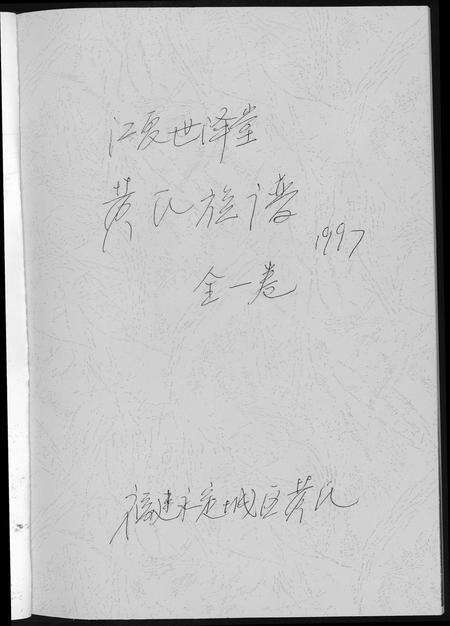 江夏世泽堂
黄氏族谱
1997
全一卷
福建永定城区黄氏